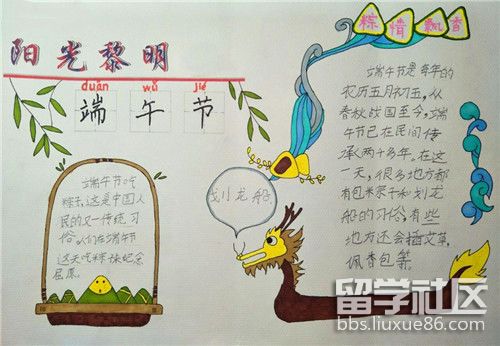 阳光黎明
duān wǔ jié
端午节
粽情飘香
端午节是每年的
农历五月初五，从
春秋战国至今，端
午节已在民间传
承两千多年。在这
一天，很多地方都
有包米粽子和划龙
船的习俗，有些
地方还会插艾草，
佩香包等。
划小龙船
端午节吃
粽子，这是中国人
民的又一传统习
俗。人们在端午节
这天吃粽子来纪念
屈原。
留学社区
bbs.liuxue86.com